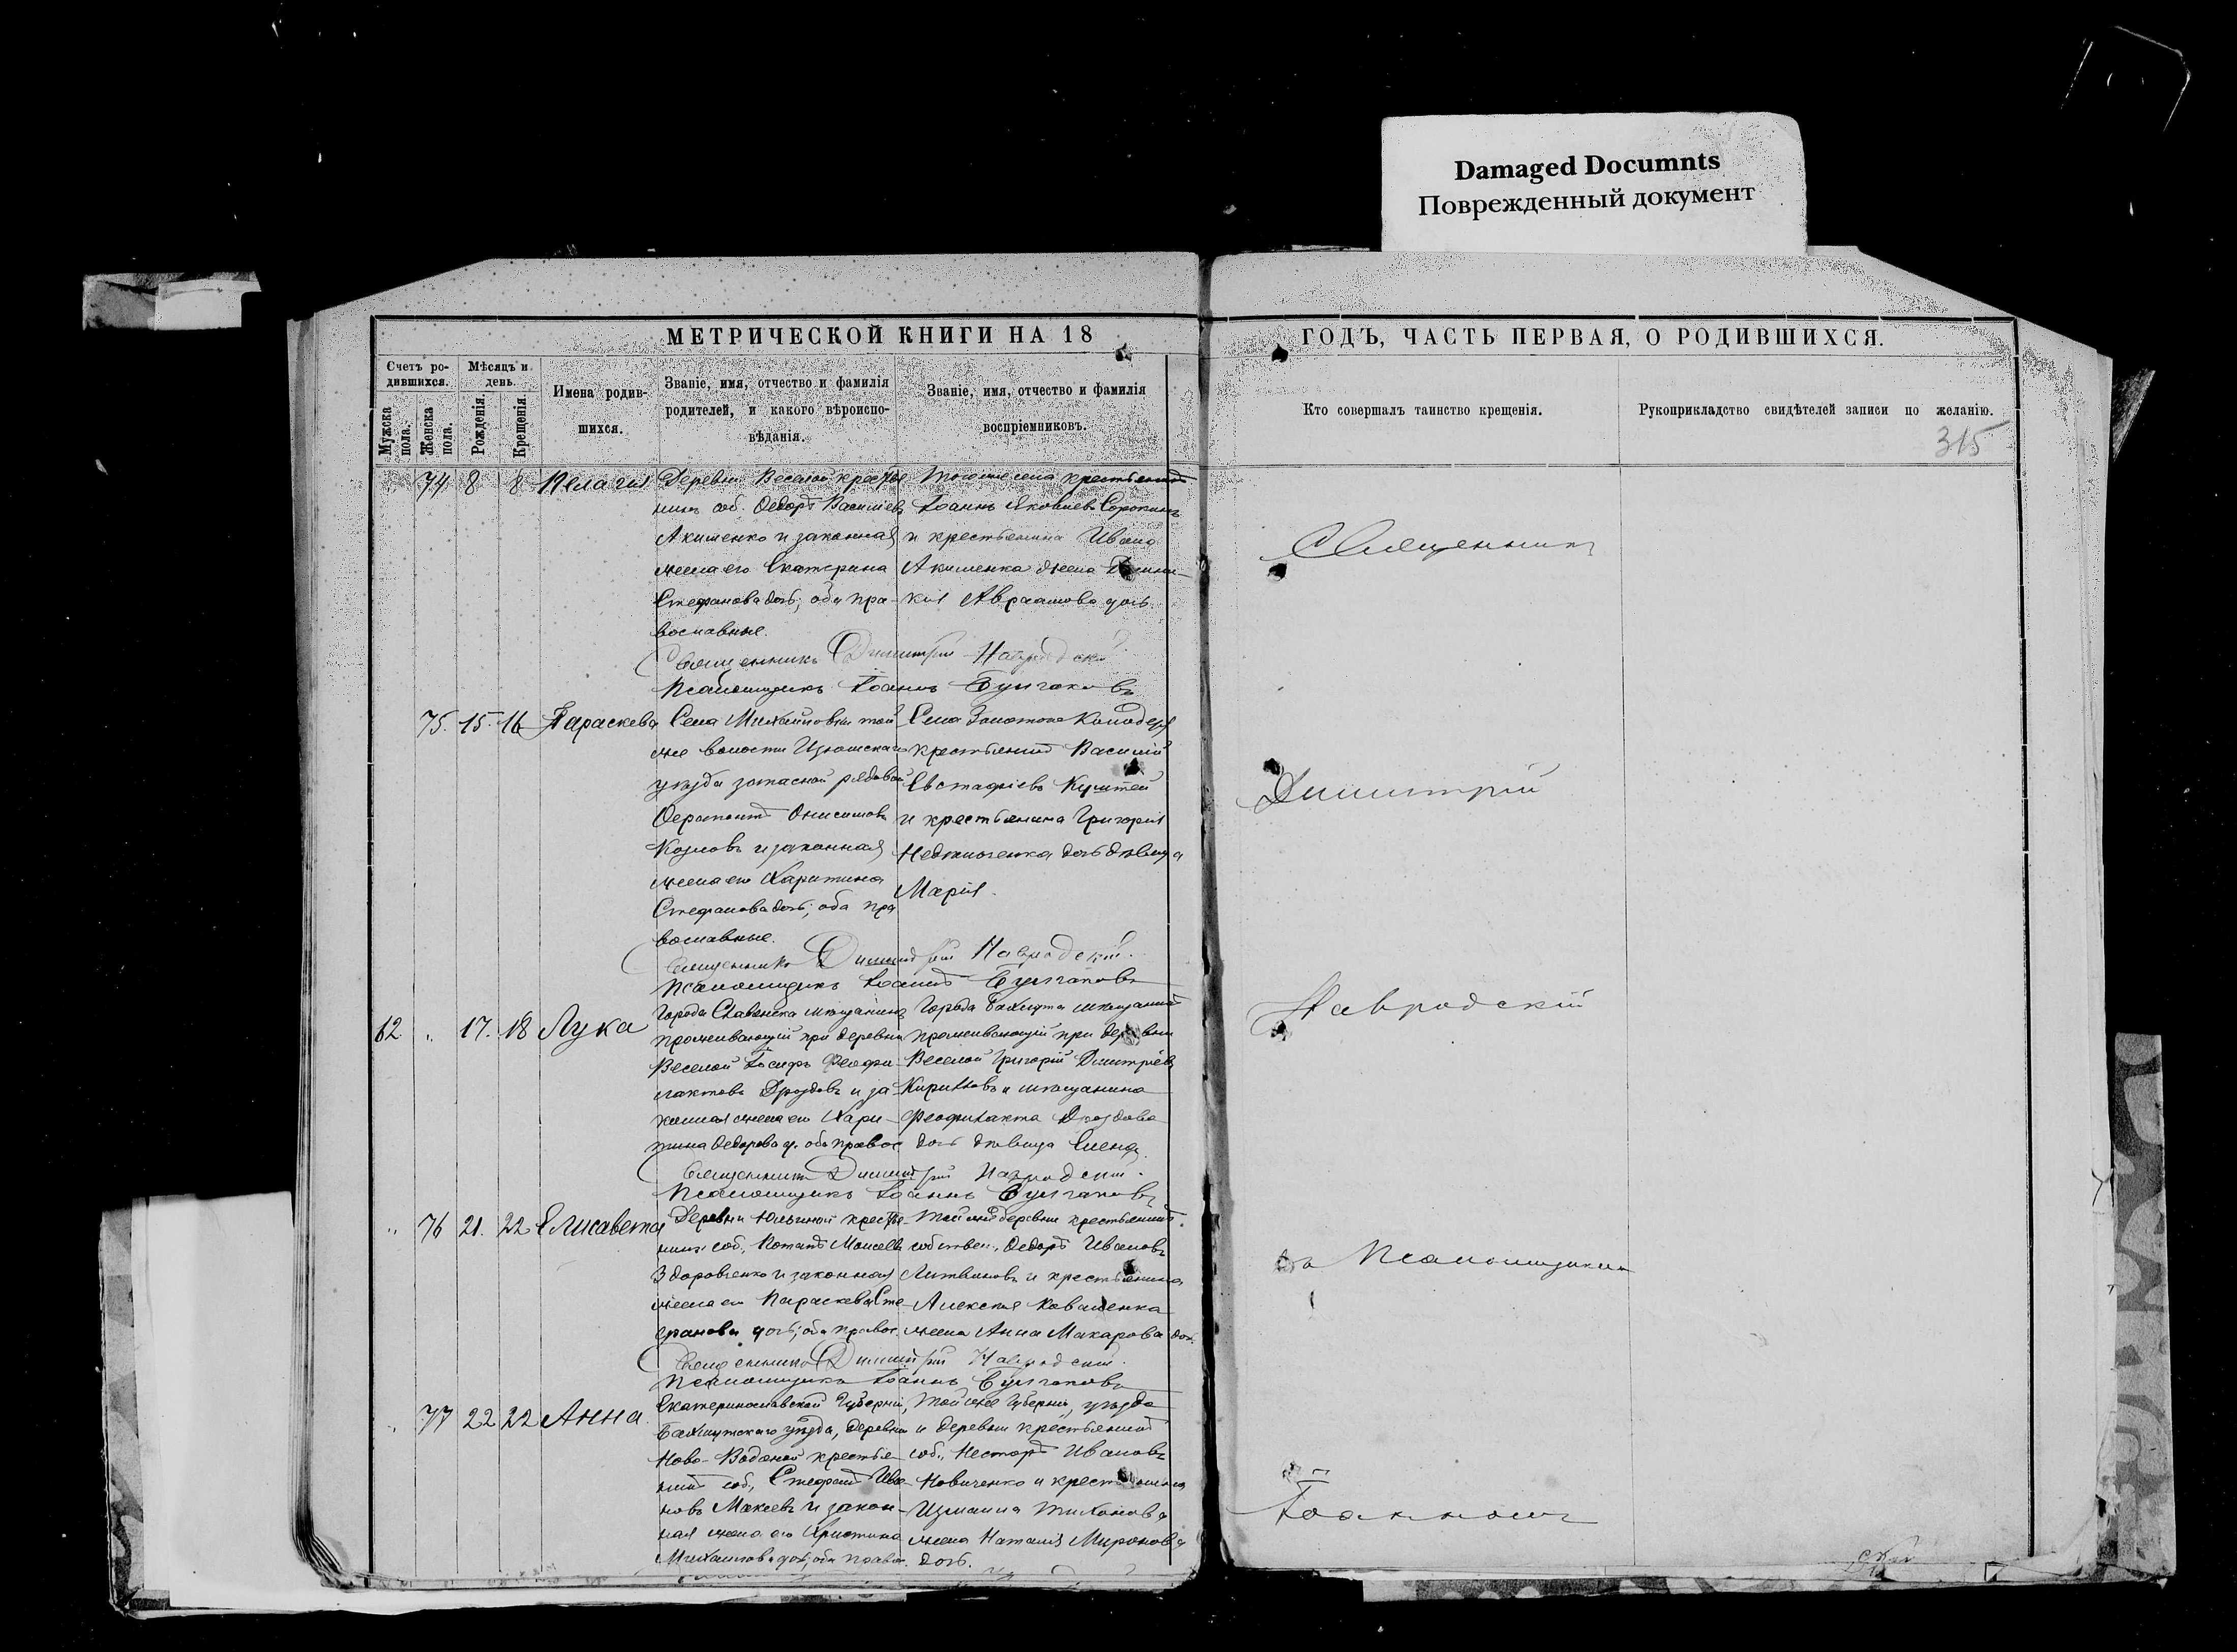 Damaged Documnts
Поврежденный документ
МЕТРИЧЕСКОЙ КНИГИ НА 18
ГОДЪ, ЧАСТЬ ПЕРВАЯ, О РОДИВШИХСЯ.
Счетъ родившихся.
Мужска пола.
Женска пола.
Мѣсяцъ и день.
Рожденія.
Крещенія.
Имена родившихся.
Званіе, имя, отчество и фамилія
родителей, и какого вѣроиспо-
вѣданія.
Званіе, имя, отчество и фамилія
воспріемниковъ.
Кто совершалъ таинство крещенія.
Рукоприкладство свидѣтелей записи по желанію.
315
74 8 8 Пелагія
Деревни Веселой крестья
нинъ соб. Ѳедоръ Васильевъ
Акименко и законная
жена его Екатерина
Стефанова дочь; оба пра-
вославные.
Тогоже села крестьянинъ
Іоаннъ Яковлевъ Сорокинъ
и крестьянина Ивана
Акименка жена
кія Авраамова дочь.
Священникъ Димитрій Навродскій
Псаломщикъ Іоаннъ Булгаковъ
75. 15. 16 Параскева
Села Михайловки той
же волости Изюмскаго
уѣзда запасной рядовой
Ѳерапонтъ Онисимовъ
Козловъ и законная
жена его Харитина
Стефанова дочь; оба пра
вославные.
Села Золотого Колодезя
крестьянинъ Василій
Евстафіевъ
и крестьянина Григорія
дочь дѣвица
Марія.
Священникъ Димитрій Навродскій.
Псаломщикъ Іоаннъ Булгаковъ
62 " 17. 18 Лука
Города Славянска мѣщанинъ
проживающій при деревни
Веселой Іосифъ Феофи-
лактовъ Дроздовъ и за-
конная жена его Хари-
тина Ѳедорова д. оба правос
Города Бахмута мѣщанинъ
проживающій при деревни
Веселой Григорій Димитріевъ
Кириловъ и мѣщанина
Феофилакта Дроздова
дочь дѣвица Елена.
Священникъ Димитрій Навродскій.
Псаломщикъ Іоаннъ Булгаковъ
" 76 21. 22 Елисавета
Деревни Юльиной крестья-
нинъ соб., Потапъ Моисеевъ
Здоровченко и законная
жена его Параскева Сте-
фанова дочь; оба правос.
Той же деревни крестьянинъ
собствен., Ѳедоръ Ивановъ
Литвиновъ и крестьянина
Алексѣя Коваленка
жена Анна Макарова доч.
Священникъ Димитрій Навродскій.
Псаломщикъ Іоаннъ Булгаковъ
" 77 22 22 Анна
Екатеринославской Губерніи,
Бахмутскаго уѣзда, деревни
Ново-Водяной крестья-
нинъ соб., Стефанъ Ива-
новъ Макеевъ и закон-
ная жена его Христина
Михаилова дочь, оба правос.
Той же Губерніи, уѣзда
и деревни крестьянинъ
соб., Несторъ Ивановъ
Новиченко и крестьянина
Измаила Тихонова
жена Наталія Миронова
дочь.
Священникъ
Димитрій
Навродскій
съ Псаломщикомъ
Іоанномъ